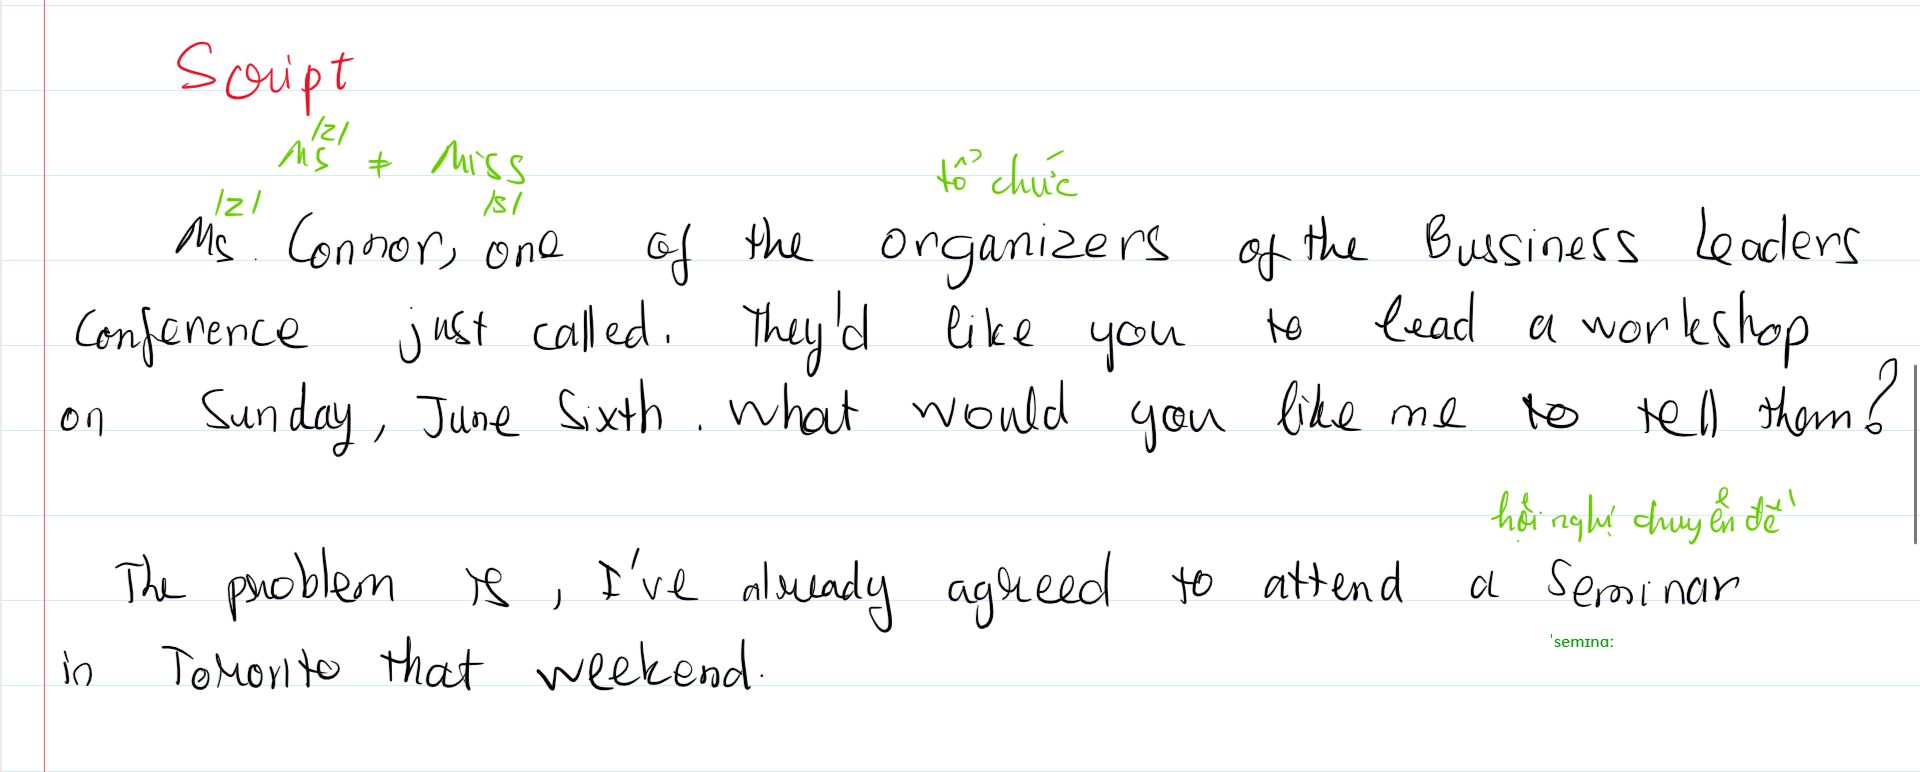 Script
/z/
Ms ≠ Miss
tổ chức
/z/ /s/
Ms. Connor, one of the organizers of the Bussiness Leaders
Conference just called. They'd like you to lead a workshop
on Sunday, June Sixth. What would you like me to tell them?
hội nghị chuyên đề
The problem is, I've already agreed to attend a Seminar
ˈsemɪnɑː
in Toronto that weekend.